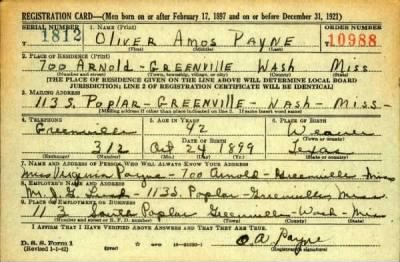 REGISTRATION CARD—(Men born on or after February 17, 1897 and on or before December 31, 1921)
SERIAL NUMBER 1. NAME (Print) ORDER NUMBER
T 1812 OLIVER AMOS PAYNE 10988
(First) (Middle) (Last)
2. PLACE OF RESIDENCE (Print)
700 ARNOLD - GREENVILLE WASH MISS
(Number and street) (Town, township, village, or city) (County) (State)
[THE PLACE OF RESIDENCE GIVEN ON THE LINE ABOVE WILL DETERMINE LOCAL BOARD
JURISDICTION; LINE 2 OF REGISTRATION CERTIFICATE WILL BE IDENTICAL]
3. MAILING ADDRESS
113 S. POPLAR - GREENVILLE - WASH - MISS -
[Mailing address if other than place indicated on line 2. If same insert word same]
4. TELEPHONE 5. AGE IN YEARS 6. PLACE OF BIRTH
Greenville 42 Weaver
DATE OF BIRTH (Town or county)
312 Oct 24 1899 Texas
(Exchange) (Number) (Mo.) (Day) (Yr.) (State or country)
7. NAME AND ADDRESS OF PERSON WHO WILL ALWAYS KNOW YOUR ADDRESS
Miss Virginia Payne - 700 Arnold - Greenville - Miss
8. EMPLOYER'S NAME AND ADDRESS
Mr. J. G. - 113 S. Poplar - Greenville, Miss
9. PLACE OF EMPLOYMENT OR BUSINESS
113 South Poplar Greenville - Wash - Miss
(Number and street or R. F. D. number) (Town) (County) (State)
I AFFIRM THAT I HAVE VERIFIED ABOVE ANSWERS AND THAT THEY ARE TRUE.
D. S. S. Form 1
(Revised 1-1-42) (over) O A Payne
(Registrant's signature)